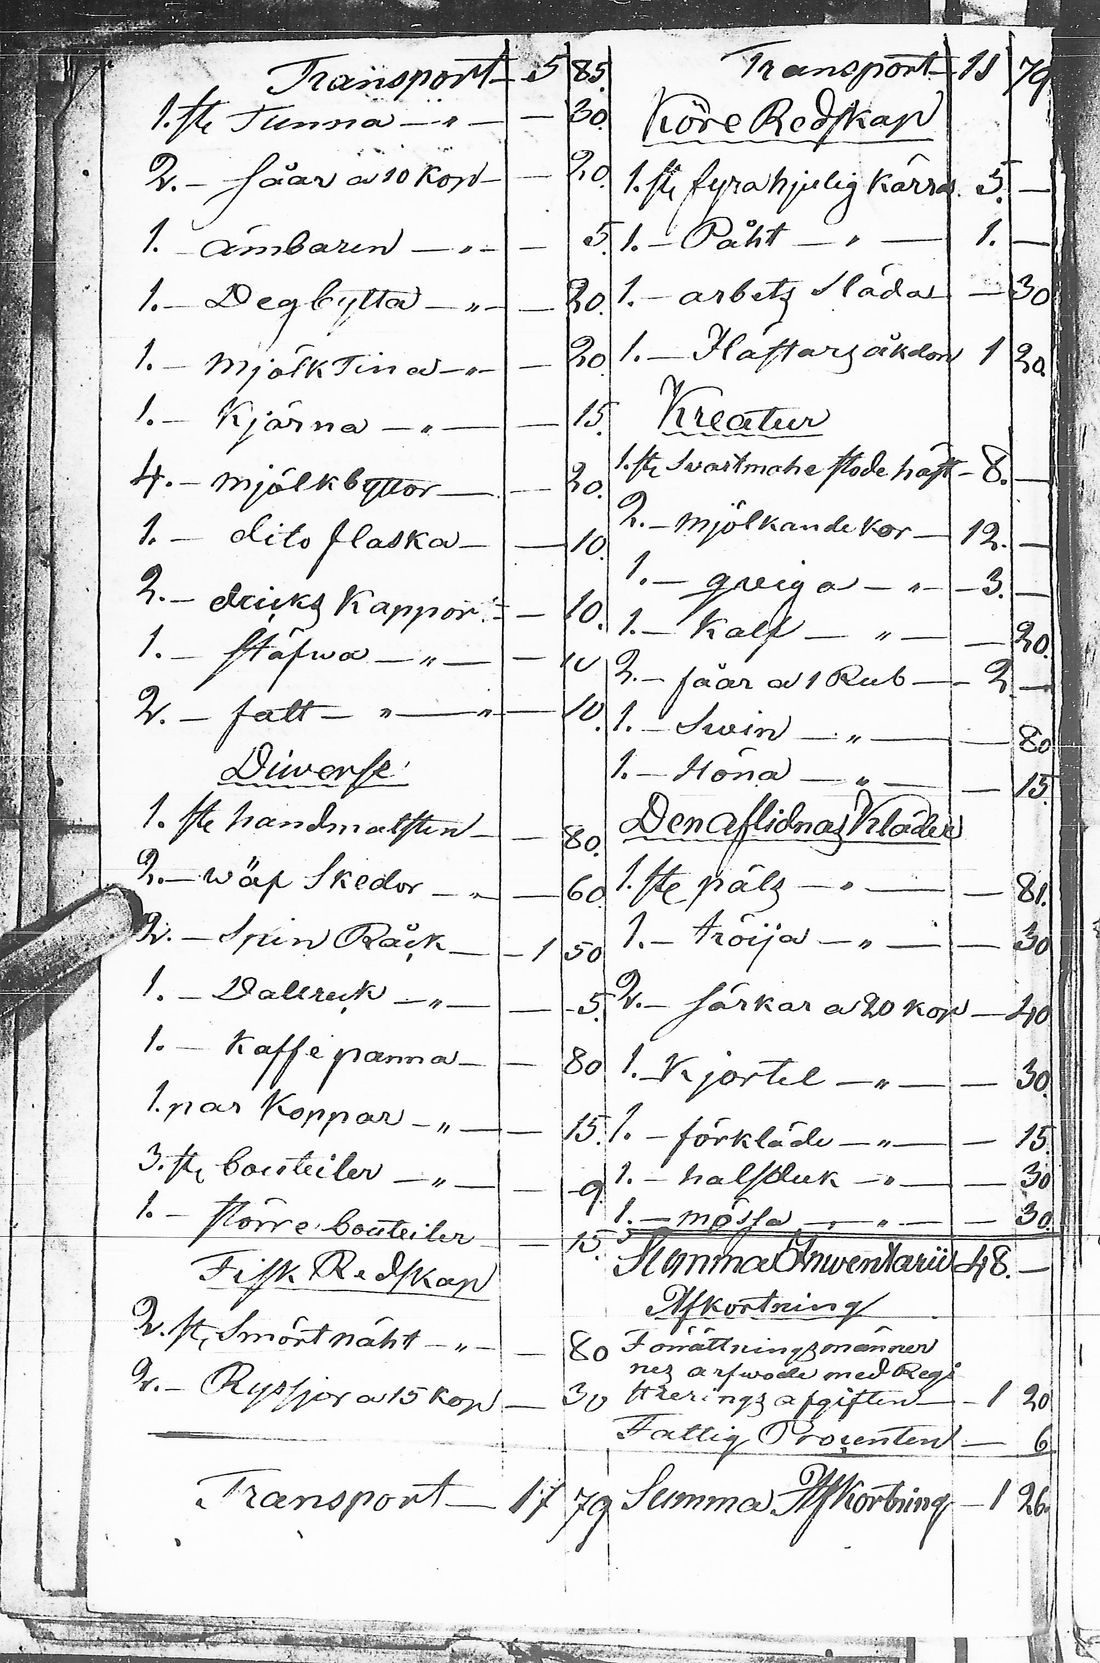 Transport — 5 85.
1. ste Tunna — " — — 30.
2. — såar a 10 kop — — 20.
1. — ämbaren — " — — 5.
1. — Degbytta — " — — 20.
1. — mjölk Tina — " — — 20.
1. — Kjärna — " — — 15.
4. — mjölkbyttor — — 20.
1. — dito flaska — — 10.
2. — dricks Kappor — 10.
1. — stäfwa — " — — 10
2. — fatt — " — " — 10.
Diwerse
1. ste handmalsten — — 80.
2. — wäf Skedor — " — 60
2. — Spin Råck — 1 50
1. — Dallruk — " — — 5.
1. — Kaffe panna — — 80
1. par Koppar — " — — 15.
3. st, bouteiler — " — — 9
1. — större bouteiler — 15.
Fisk Redskap
2. st, Smört näht — " — — 80
2. — Ryssjor a 15 kop — 30
Transport — 17 79
Transport — 17 79
Köre Redskap
1. ste fyrahjulig Kärra 5. —
1. — Påht — " — 1. —
1. — arbets Släda — 30
1. — Hästars åkdon 1 20.
Kreatur
1. ste Swartmahe stode häst — 8. —
2. — mjölkande kor — 12. —
1. — qwiga — " — 3. —
1. — Kalf — " — — 20.
2. — fåar a 1 Rub — 2 —
1. — Swin — " — — 80
1. — Höna — " — — 15.
Den aflidnas Kläder
1. ste päls — " — — 81.
1. — tröija — " — — 30
2. — särkar a 20 kop — 40
1. Kjortel — " — — 30.
1. — förkläde — " — — 15.
1. — halsduk — " — — 30
1. — mössa — " — — 30.
Summa Inwentarii 48. —
Afkortning
Förrättningsmänner
nes arfwode med Regi
strerings afgiften — 1 20
Fattig Prosenten — 6.
Summa Afkortning — 1 26.